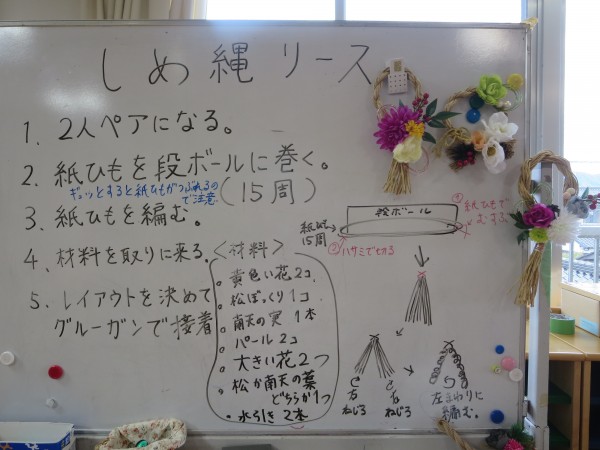 しめ縄リース
1. 2人ペアになる。
2. 紙ひもを段ボールに巻く。
ギュッとすると紙ひもがつぶれるので注意
(15周)
3. 紙ひもを編む。
4. 材料を取りに来る。
5. レイアウトを決めて
グルーガンで接着
<材料>
・黄色い花2コ
・松ぼっくり1コ
・南天の実 1本
・パール 2コ
・大きい花2つ
・松か南天の葉
どちらか1つ
・水引き 2本
段ボール
紙ひも
15周
①紙ひもで
むすぶ
②ハサミで切る
右
ねじる
右
ねじる
左まわりに
編む。